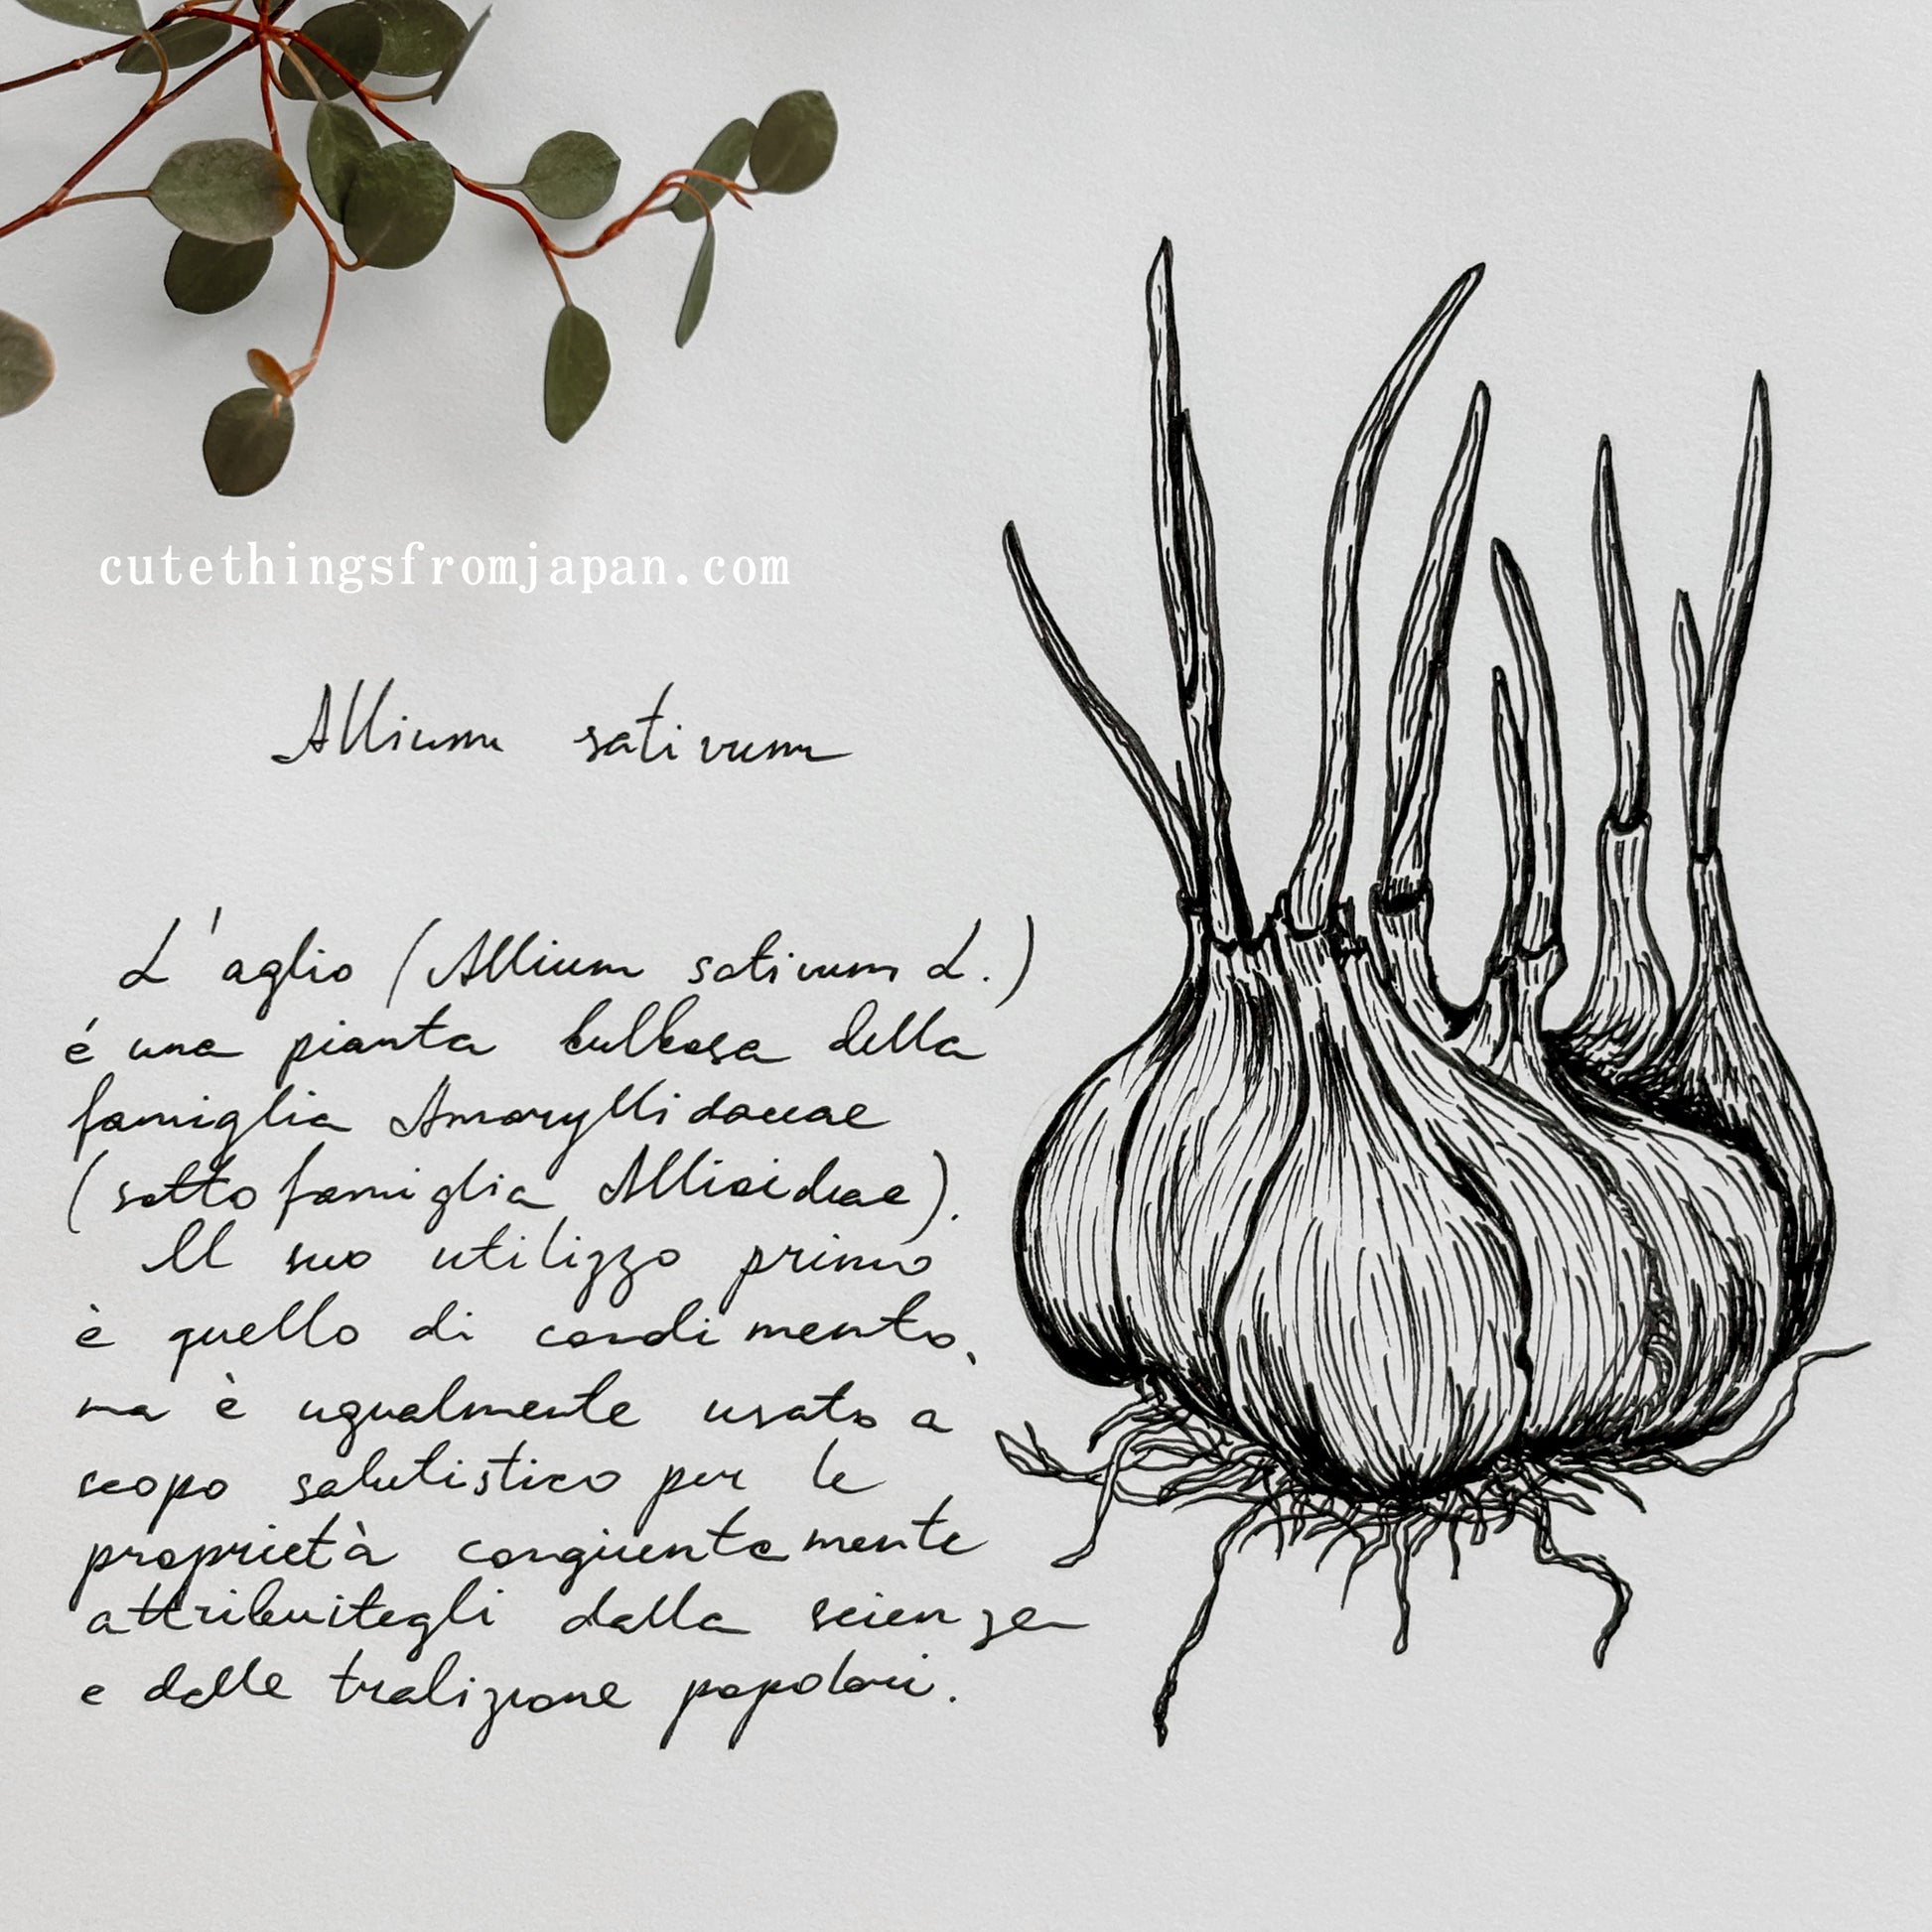 cutethingsfromjapan.com
Allium sativum
L'aglio (Allium sativum L.)
é una pianta bulbosa della
famiglia Amaryllidaceae
(sottofamiglia Allioideae).
Il suo utilizzo primo
è quello di condimento,
ma è ugualmente usato a
scopo salutistico per le
proprietà congiuentemente
attribuitegli dalla scienza
e dalle tradizione popolari.